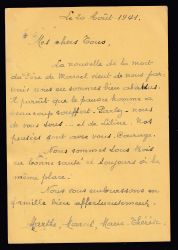 Le 20 Août 1941.
Mes chers Tous,
La nouvelle de la mort
du Père de Marcel vient de nous
nous en sommes bien
Il paraît que le pauvre homme a
beaucoup souffert. Parlez-nous
de vous tous et de Nos
pensées sont avec vous. Courage.
Nous sommes tous trois
en bonne santé et toujours à la
même place.
Nous vous embrassons en
famille bien affectueusement.
Marthe, Marcel, Marie-Thérèse.